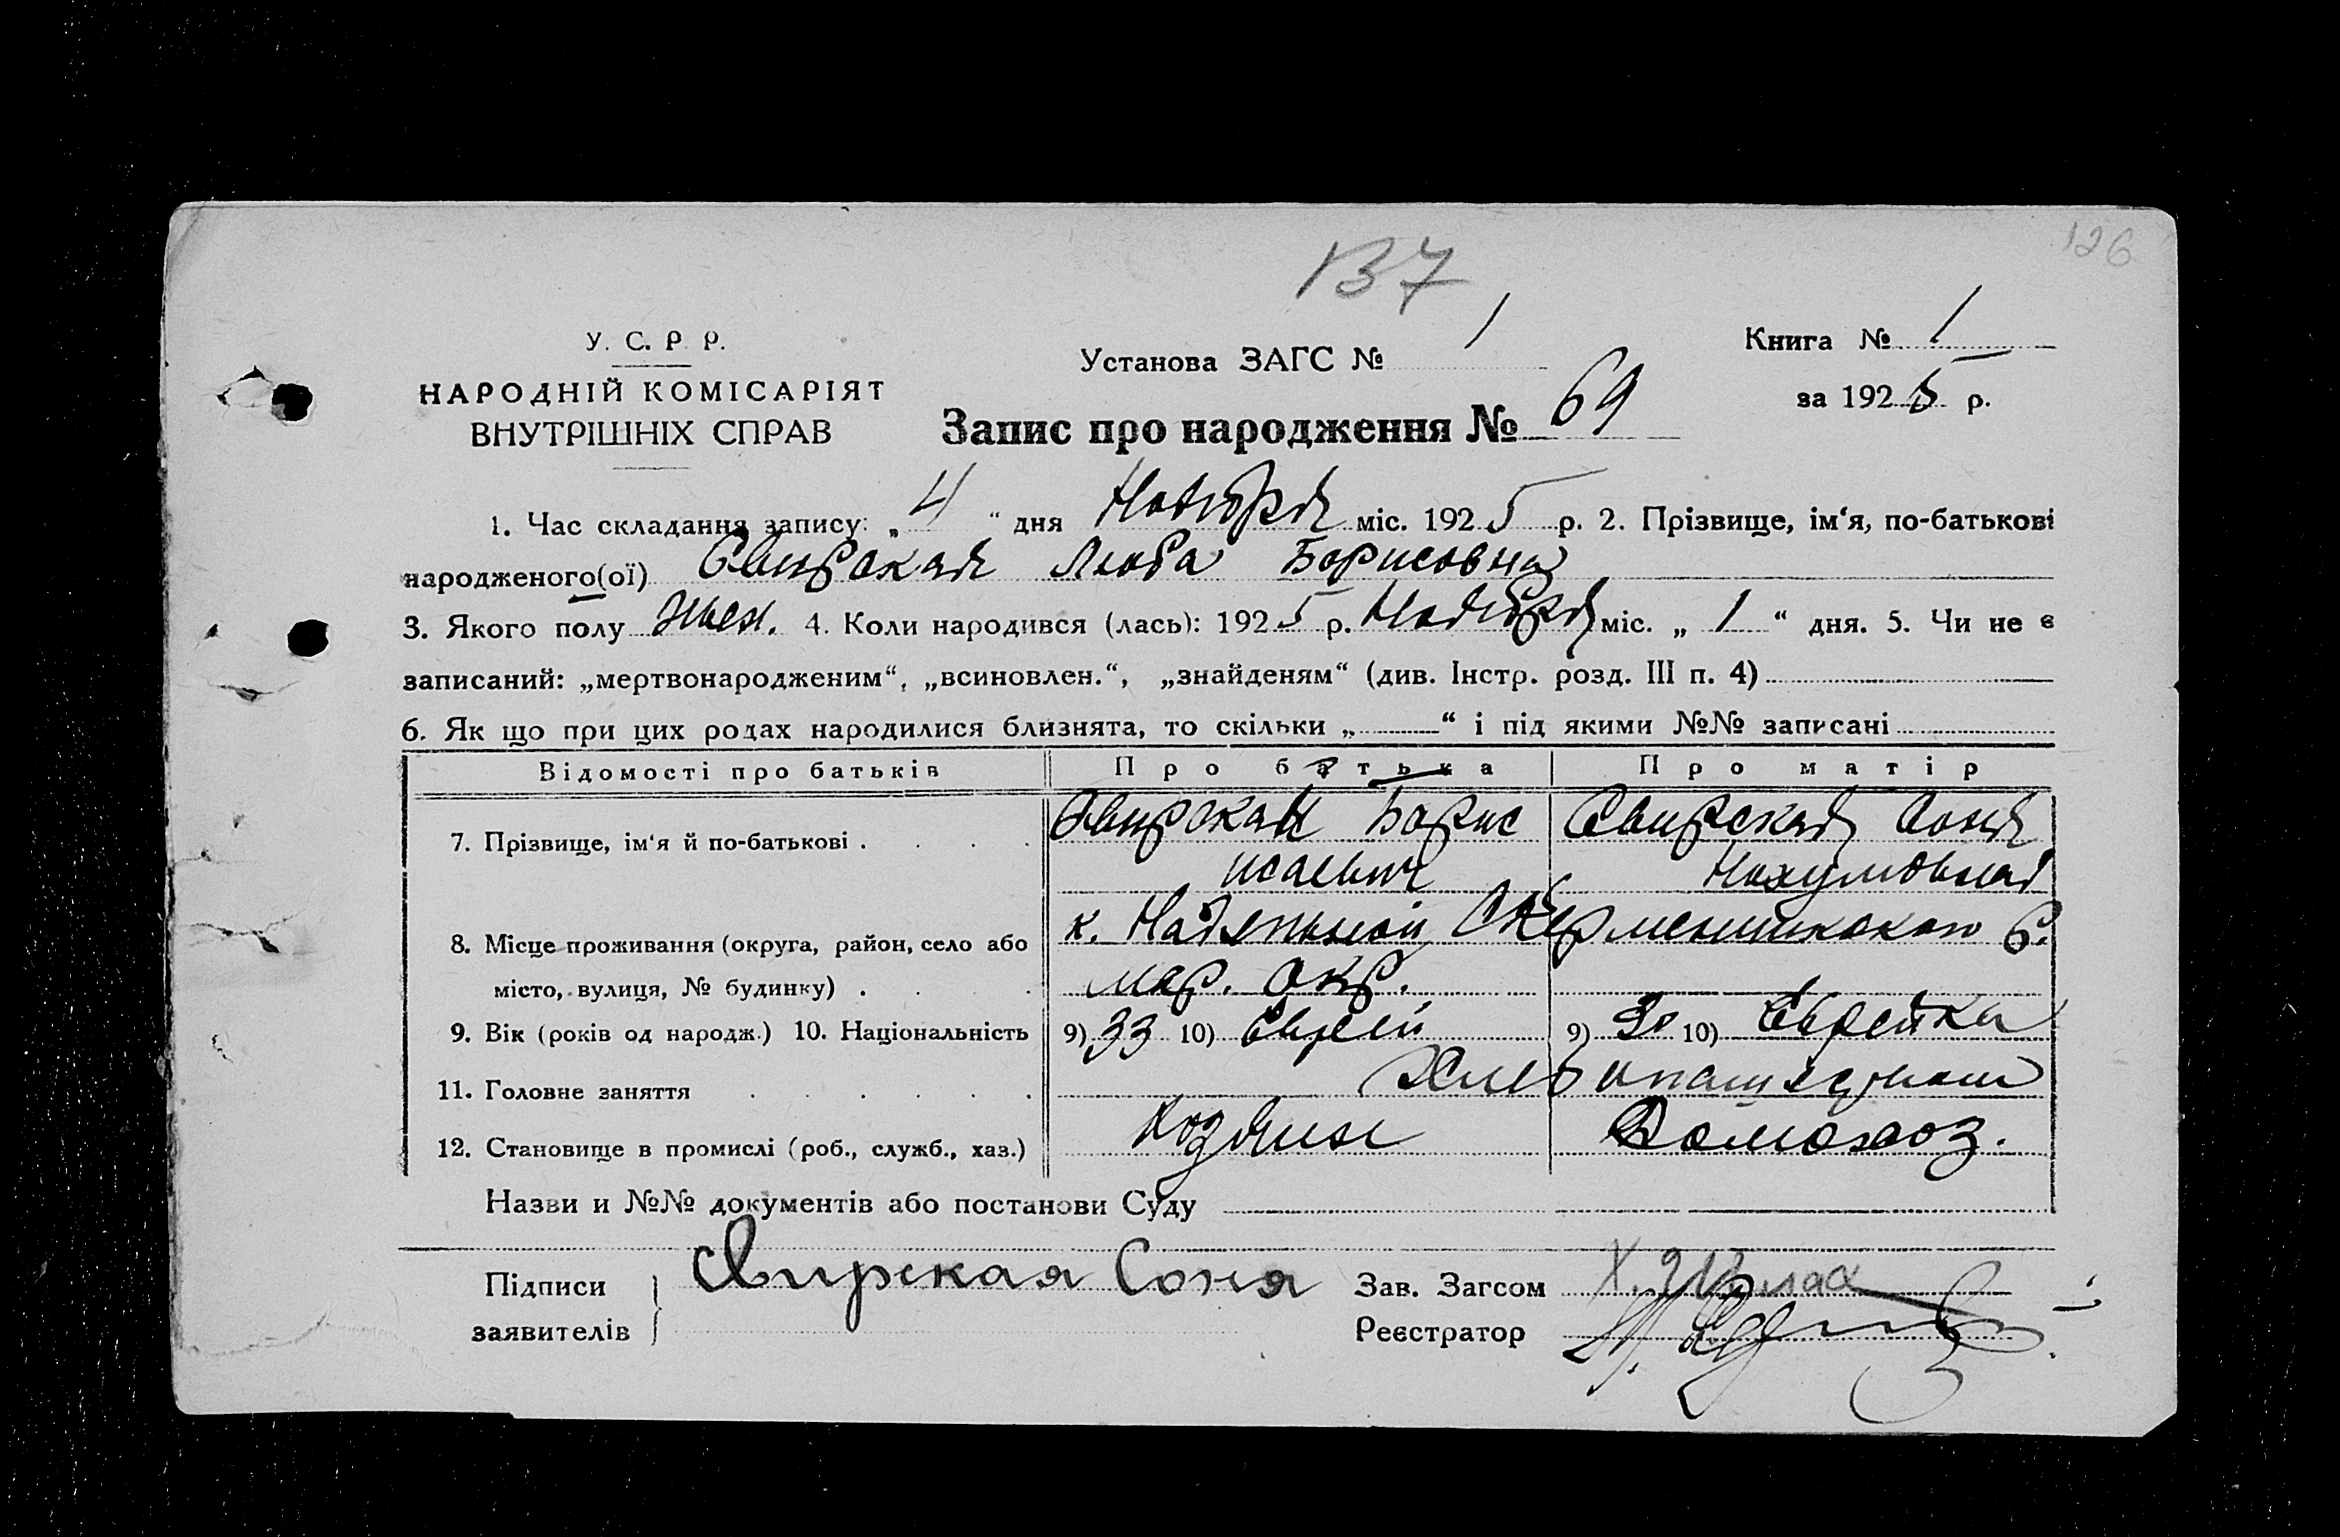 126
137
У. С. Р. Р.
НАРОДНІЙ КОМІСАРІЯТ
ВНУТРІШНІХ СПРАВ
Установа ЗАГС № 1
Книга № 1
за 1925 р.
Запис про народження № 69
1. Час складання запису: „4“ дня Ноября міс. 1925 р. 2. Прізвище, ім‘я, по-батькові
народженого(ої) Свирская Люба Борисовна
3. Якого полу жен. 4. Коли народився (лась): 1925 р. Ноября міс. „1“ дня. 5. Чи не є
записаний: „мертвонародженим“, „всиновлен.“, „знайденям“ (див. Інстр. розд. III п. 4)
6. Як що при цих родах народилися близнята, то скільки „ “ і під якими №№ записані
Відомості про батьків Про батька Про матір
7. Прізвище, ім‘я й по-батькові Свирский Борис Свирская Соня
Исаевич Нахумовна
8. Місце проживання (округа, район, село або к. Надежной р.
місто, вулиця, № будинку) мар. окр.
9. Вік (років од народж.) 10. Національність 9) 33 10) Еврей 9) 30 10) Еврейка
11. Головне заняття Хлебопашеством
12. Становище в промислі (роб., служб., хаз.) Хозяин Домохоз.
Назви и №№ документів або постанови Суду
Підписи Свирская Соня Зав. Загсом
заявителів Реєстратор